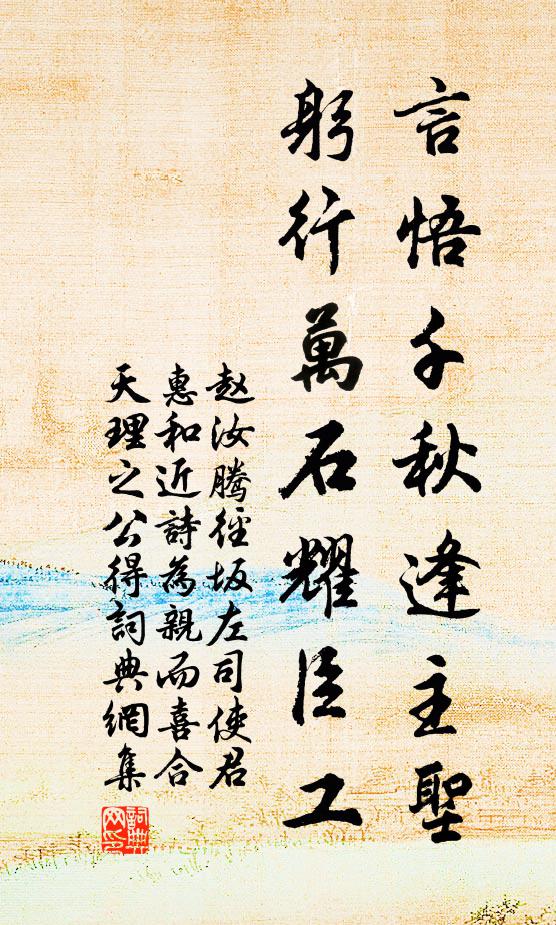 言悟千秋逢主聖
躬行萬石耀臣工
赵汝腾徑坂左司使君
惠和近詩為親而喜合
天理之公得詞典網集
詞典网印